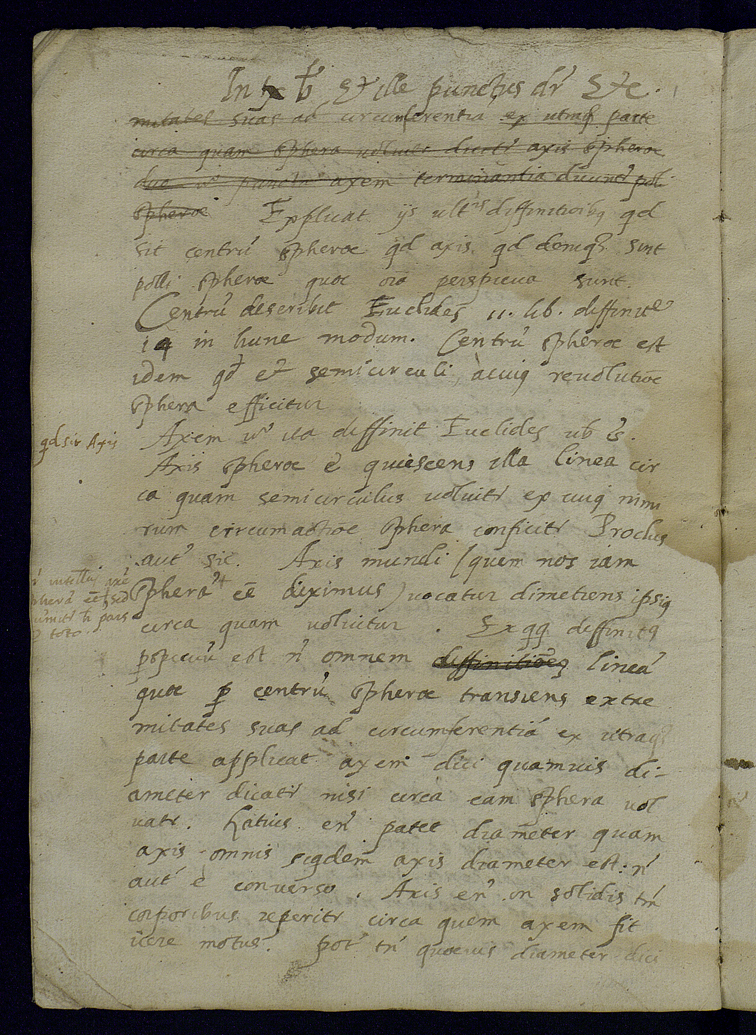 In tx b Et ille punctus dr̄ Etc.
mitates suas ad circumferentia ex utraq parte
circa quam sphera voluitr dicitr axis spheræ
duo v° puncta axem terminantia dicuntr pol.
spheræ Explicat ijs ult diffinitioibq qd
sit centrū spheræ qd axis qd deniq sint
polli spheræ quæ oīa perspicua sunt.
Centrū describit Euclides 11. lib. diffinit
14 in hunc modum. Centrū spheræ est
idem qd et semicirculi, à cuiq revolutiōe
sphera efficitur
qd sit Axis
Axem v° ita diffinit Euclides ub s.
Axis spheræ ē quiescens illa linea cir
ca quam semicirculus voluitr ex cuiq nimi
rum circumactiōe sphera conficitr Proclus
aut sic. Axis mundi (quem nos iam
spheræ ēē diximus) vocatur dimetiens ipsiq
circa quam voluitur. Ex qq diffinitq
pspicuū est n omnem diffinitiōeq lineā
quæ p centrū spheræ transiens extre
mitates suas ad circumferentiā ex utraq
parte applicat axem dici quamvis di-
ameter dicatr nisi circa eam sphera vol
vatr. Latius en patet diameter quam
axis omnis siqdem axis diameter est: n
aut è converso. Axis en in solidis tn
corporibus reperitr circa quem axem fit
motus. pot tn quævis diameter dici